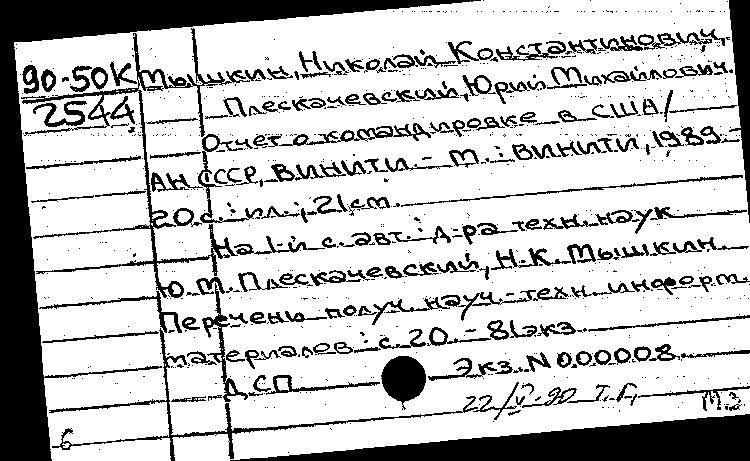 90-50К Мышкин, Николай Константинович,
2544 Плескачевский, Юрий Михайлович.
Отчет о командировке в США /
АН СССР, ВИНИТИ. - М. : ВИНИТИ, 1989. -
20 с. : ил. ; 21 см.
На 1-й с. авт. : д-ра техн. наук
Ю. М. Плескачевский, Н. К. Мышкин.
Перечень получ. науч.-техн. информ.
материалов : с. 20. - 81 экз.
ДСП. Экз. N 000008.
22/V-90 Т. Г.
6 МЗ